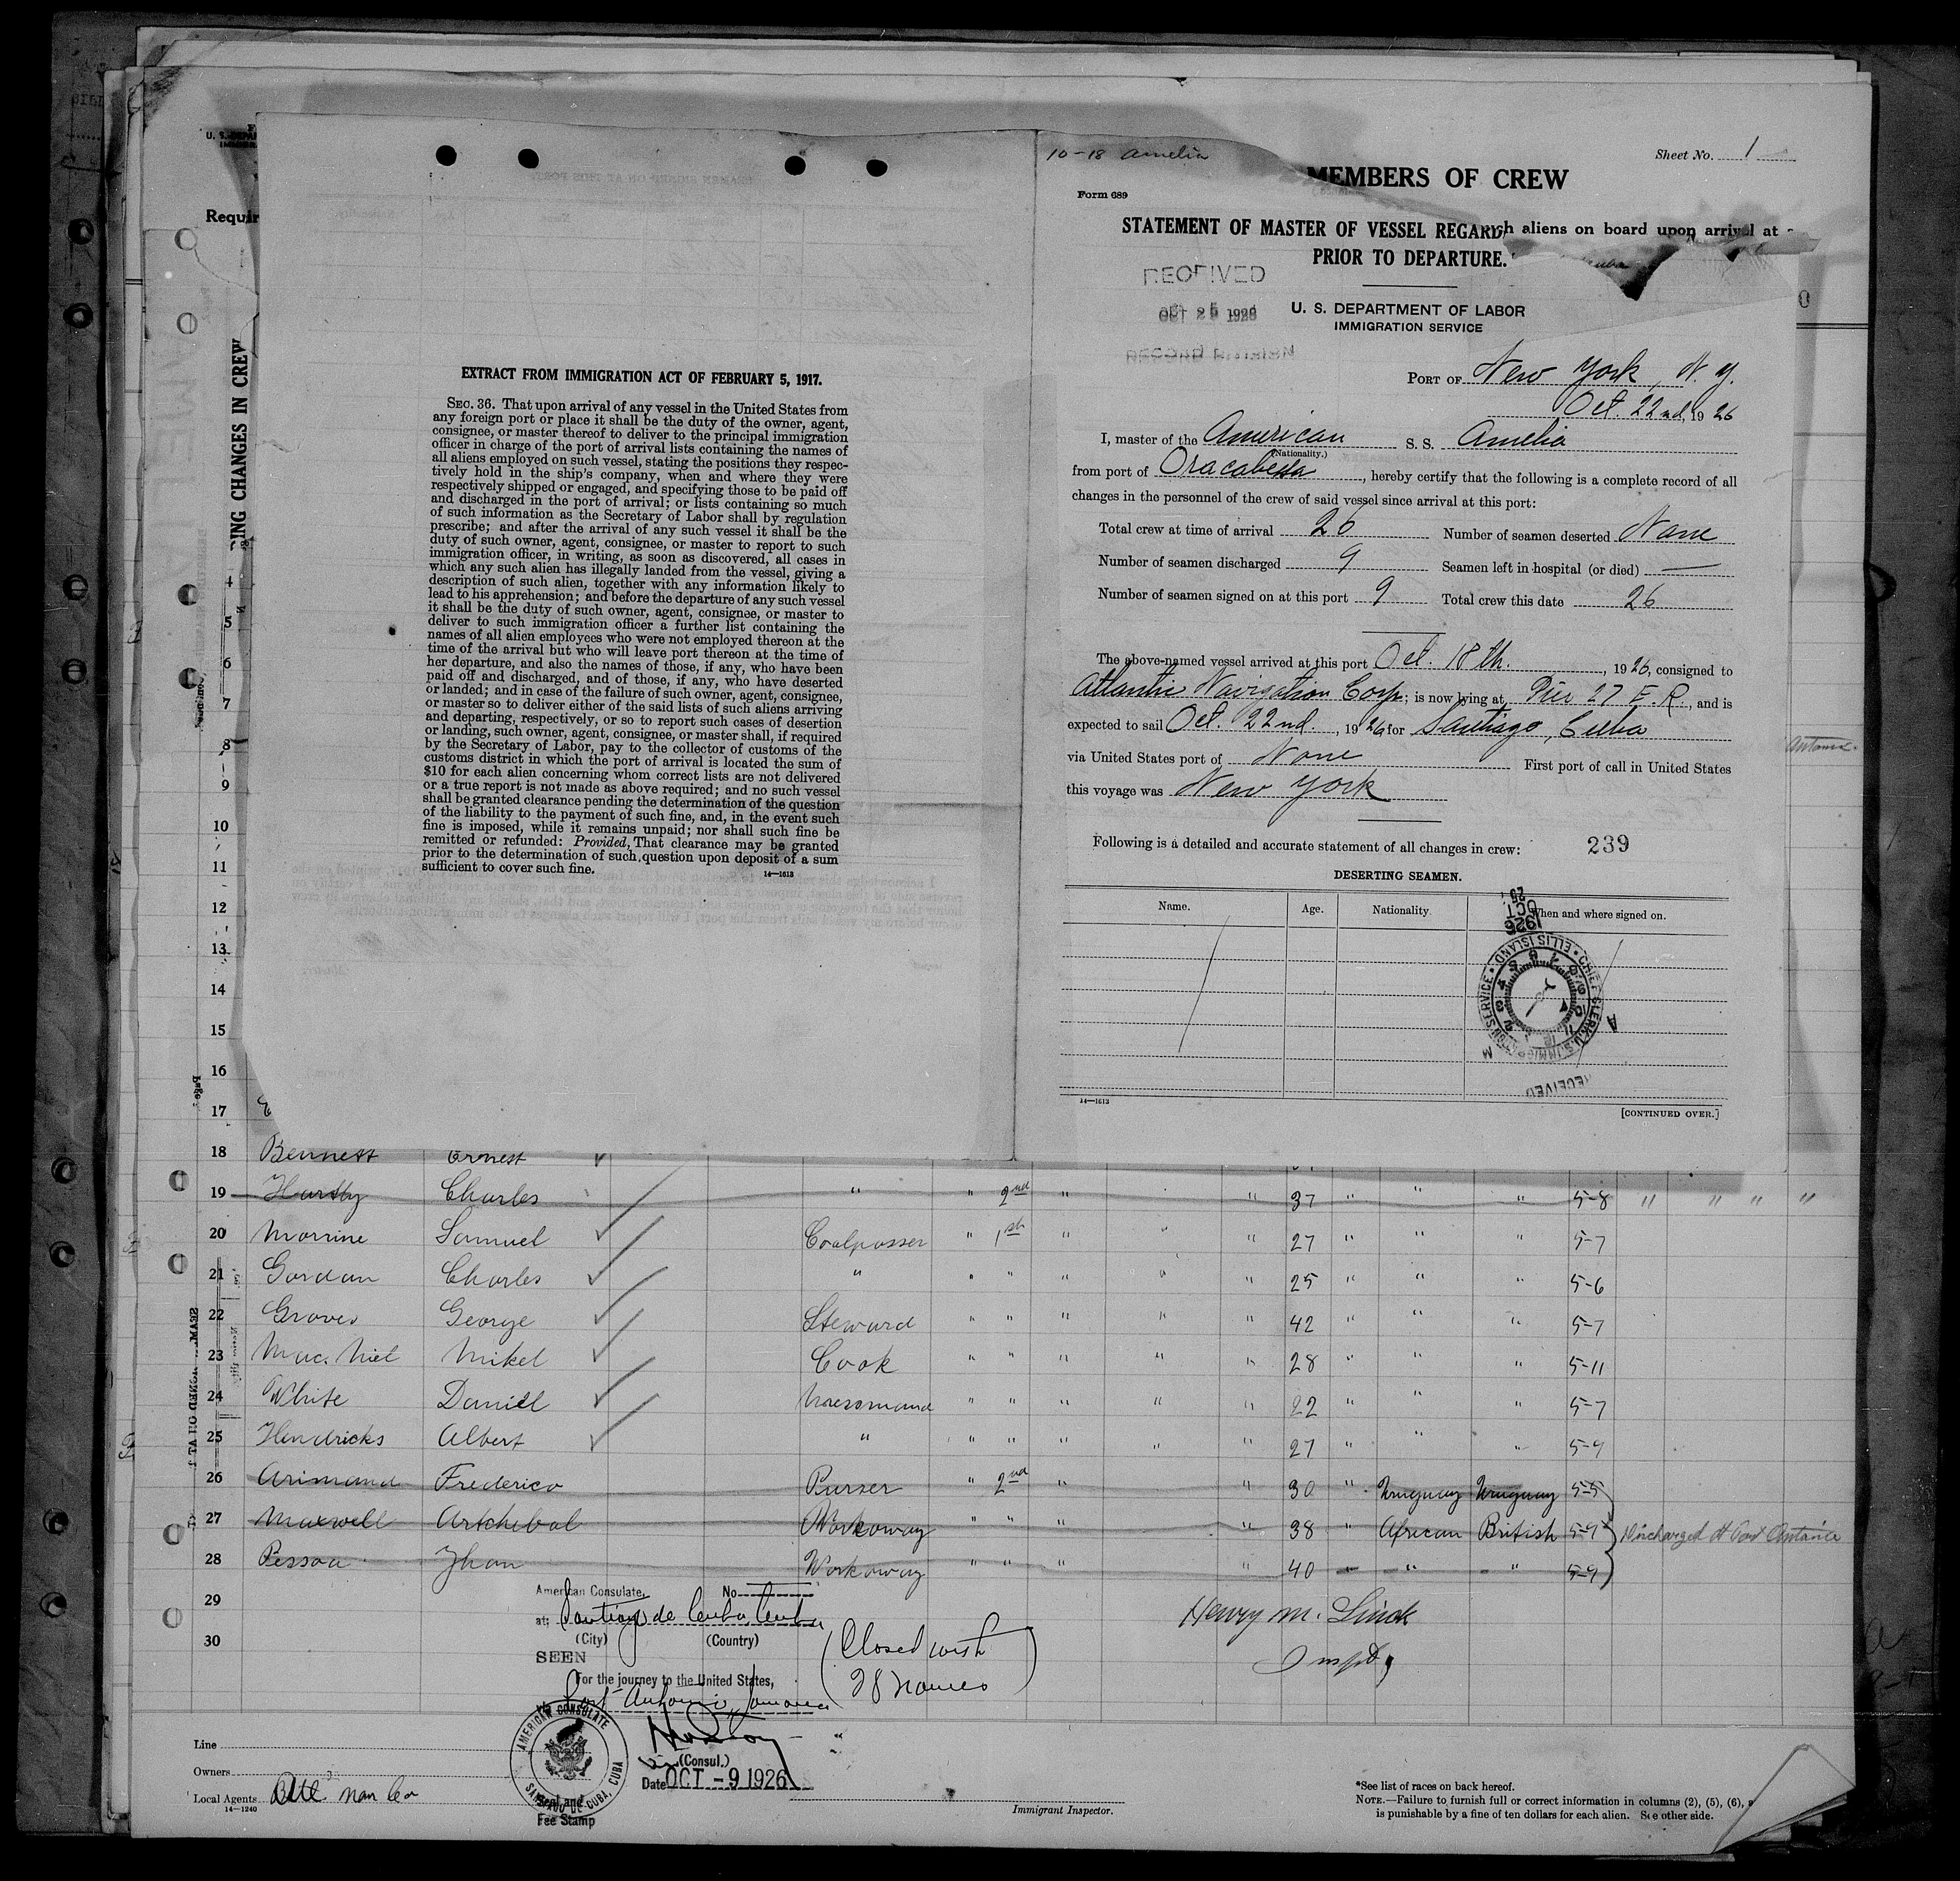 10-18 Amelia
Sheet No. 1
MEMBERS OF CREW
Form 689
STATEMENT OF MASTER OF VESSEL REGARD
ch aliens on board upon arrival at
PRIOR TO DEPARTURE.
RECEIVED
OCT 25 1926
RECORD DIVISION
U. S. DEPARTMENT OF LABOR
IMMIGRATION SERVICE
PORT OF New York, N. Y.
Oct. 22nd, 1926
I, master of the American S. S. Amelia
(Nationality.)
from port of Oracabessa, hereby certify that the following is a complete record of all
changes in the personnel of the crew of said vessel since arrival at this port:
Total crew at time of arrival 26 Number of seamen deserted None
Number of seamen discharged 9 Seamen left in hospital (or died) —
Number of seamen signed on at this port 9 Total crew this date 26
The above-named vessel arrived at this port Oct. 18th., 1926, consigned to
Atlantic Navigation Corp; is now lying at Pier 27 E R., and is
expected to sail Oct. 22nd., 1926 for Santiago, Cuba
via United States port of None First port of call in United States
this voyage was New York
Following is a detailed and accurate statement of all changes in crew: 239
DESERTING SEAMEN.
Name. Age. Nationality When and where signed on.
OCT 1926
CHIEF CLERK U.S. IMMIGRATION SERVICE ELLIS ISLAND
RECEIVED
14—1613
[CONTINUED OVER.]
U. S. DEPAR
Requir
ING CHANGES IN CREW
EXTRACT FROM IMMIGRATION ACT OF FEBRUARY 5, 1917.
SEC. 36. That upon arrival of any vessel in the United States from
any foreign port or place it shall be the duty of the owner, agent,
consignee, or master thereof to deliver to the principal immigration
officer in charge of the port of arrival lists containing the names of
all aliens employed on such vessel, stating the positions they respec-
tively hold in the ship's company, when and where they were
respectively shipped or engaged, and specifying those to be paid off
and discharged in the port of arrival; or lists containing so much
of such information as the Secretary of Labor shall by regulation
prescribe; and after the arrival of any such vessel it shall be the
duty of such owner, agent, consignee, or master to report to such
immigration officer, in writing, as soon as discovered, all cases in
which any such alien has illegally landed from the vessel, giving a
description of such alien, together with any information likely to
lead to his apprehension; and before the departure of any such vessel
it shall be the duty of such owner, agent, consignee, or master to
deliver to such immigration officer a further list containing the
names of all alien employees who were not employed thereon at the
time of the arrival but who will leave port thereon at the time of
her departure, and also the names of those, if any, who have been
paid off and discharged, and of those, if any, who have deserted
or landed; and in case of the failure of such owner, agent, consignee,
or master so to deliver either of the said lists of such aliens arriving
and departing, respectively, or so to report such cases of desertion
or landing, such owner, agent, consignee, or master shall, if required
by the Secretary of Labor, pay to the collector of customs of the
customs district in which the port of arrival is located the sum of
$10 for each alien concerning whom correct lists are not delivered
or a true report is not made as above required; and no such vessel
shall be granted clearance pending the determination of the question
of the liability to the payment of such fine, and, in the event such
fine is imposed, while it remains unpaid; nor shall such fine be
remitted or refunded: Provided, That clearance may be granted
prior to the determination of such question upon deposit of a sum
sufficient to cover such fine.
14—1613
4
5
6
7
8
9
10
11
12
13
14
15
16
17
18 Bennett Ernest
19 Charles " " 2nd " " 37 " " " 5-8 " " " "
20 Morrine Samuel Coalpasser " 1st " " " 27 " " " 5-7
21 Gordon Charles " " " " " " 25 " " " 5-6
22 Groves George Steward " " " " " 42 " " " 5-7
23 Mac. Niel Mikel Cook " " " " " 28 " " " 5-11
24 White Daniel Messmand " " " " " 22 " " " 5-7
25 Hendricks Albert " " " " " " 27 " " " 5-9
26 Arimand Frederico Purser " 2nd " " 30 " Uruguay Uruguay 5-5
27 Maxwell Artchebal Workaway " " " " 38 " African British 5-9 Discharged at Port Antonio
28 Pessoa Jhon Workaway " " " 40 " " " 5-9
29
30
American Consulate, No
at: Santiago de Cuba, Cuba
(City) (Country)
SEEN
For the journey to the United States,
via Port Antonio Jamaica
(Closed with
28 names)
Henry M. Linck
Inspt,
AMERICAN CONSULATE SANTIAGO DE CUBA, CUBA
(Consul.)
Date OCT -9 1926
Seal and
Fee Stamp
Line
Owners
Local Agents
14—1240
Immigrant Inspector.
*See list of races on back hereof.
NOTE.—Failure to furnish full or correct information in columns (2), (5), (6),
is punishable by a fine of ten dollars for each alien. See other side.